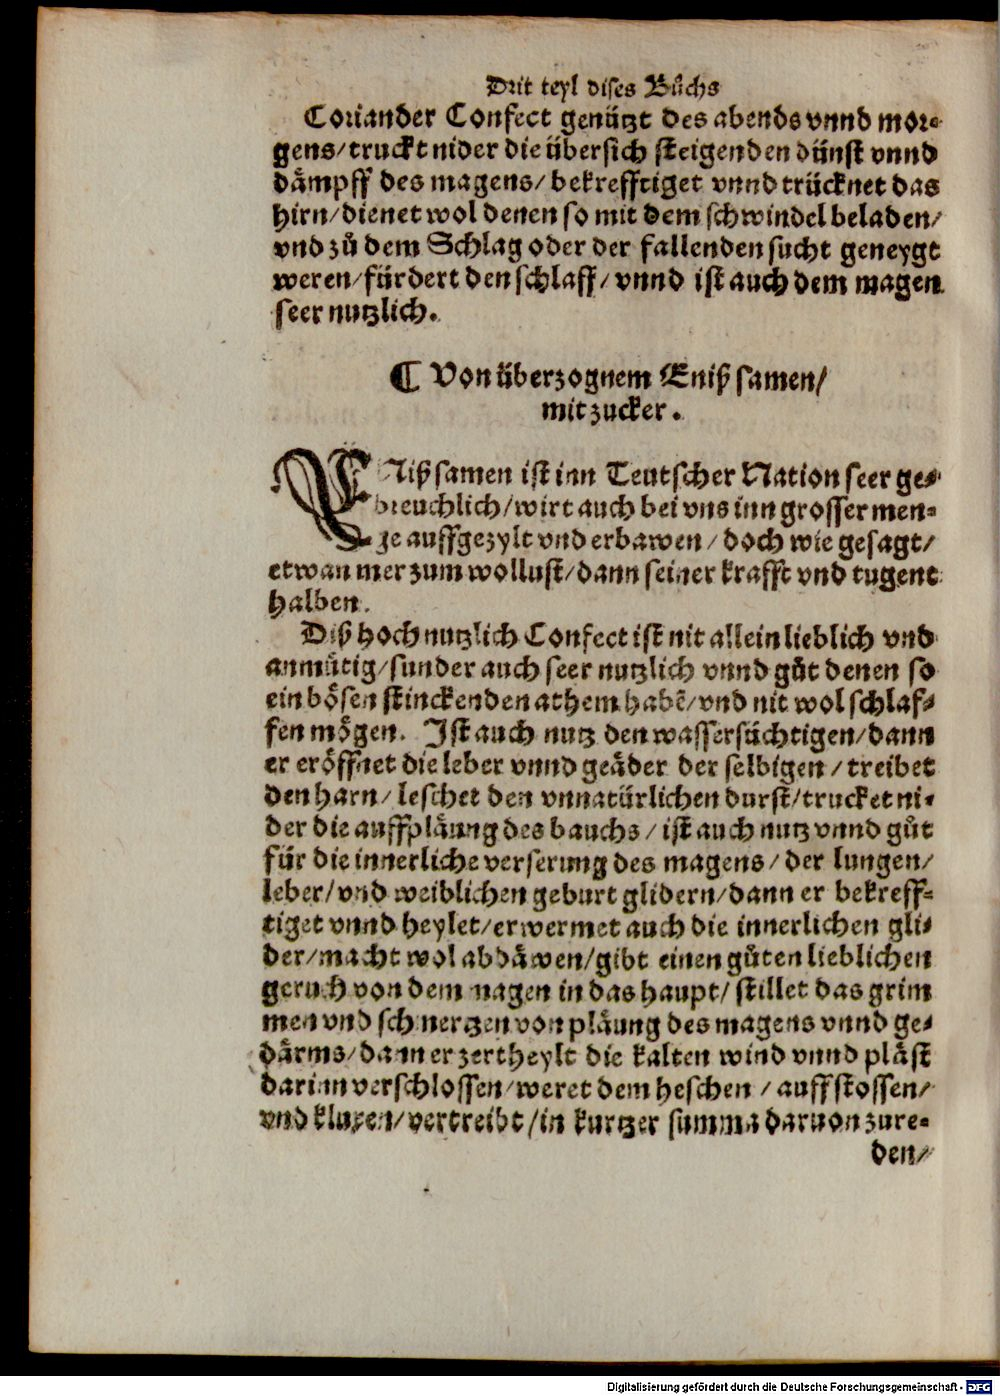 Drit teyl dises Bůchs
Coriander Confect genützt des abends vnnd mor⸗
gens/truckt nider die übersich steigenden dünst vnnd
dämpff des magens/ bekrefftiget vnnd trücknet das
hirn/dienet wol denen so mit dem schwindel beladen/
vnd zů dem Schlag oder der fallenden sucht geneygt
weren/fürdert den schlaff/ vnnd ist auch dem magen
seer nutzlich.
¶ Von überzognem Eniß samen/
mit zucker.
ENiß samen ist inn Teutscher Nation seer ge⸗
breuchlich/wirt auch bei vns inn grosser men⸗
ge auffgezylt vnd erbawen/ doch wie gesagt/
etwan mer zum wollust/dann seiner krafft vnd tugent
halben.
Diß hoch nutzlich Confect ist nit allein lieblich vnd
anmůtig/sunder auch seer nutzlich vnnd gůt denen so
ein bösen stinckenden athem habẽ/vnd nit wol schlaf⸗
fen mögen. Ist auch nutz den wassersüchtigen/dann
er eröffnet die leber vnnd geäder der selbigen/ treibet
den harn/ leschet den vnnatürlichen durst/trucket ni⸗
der die auffpläung des bauchs/ ist auch nutz vnnd gůt
für die innerliche verserung des magens/ der lungen/
leber/vnd weiblichen geburt glidern/dann er bekreff⸗
tiget vnnd heylet/erwermet auch die innerlichen gli⸗
der/macht wol abdäwen/gibt einen gůten lieblichen
geruch von dem magen in das haupt/ stillet das grim
men vnd schmertzen von pläung des magens vnnd ge⸗
därms/dann er zertheylt die kalten wind vnnd pläst
darinn verschlossen/weret dem heschen/ auffstossen/
vnd kluxen/vertreibt/in kurtzer summa daruon zure⸗
den/
Digitalisierung gefördert durch die Deutsche Forschungsgemeinschaft - DFG